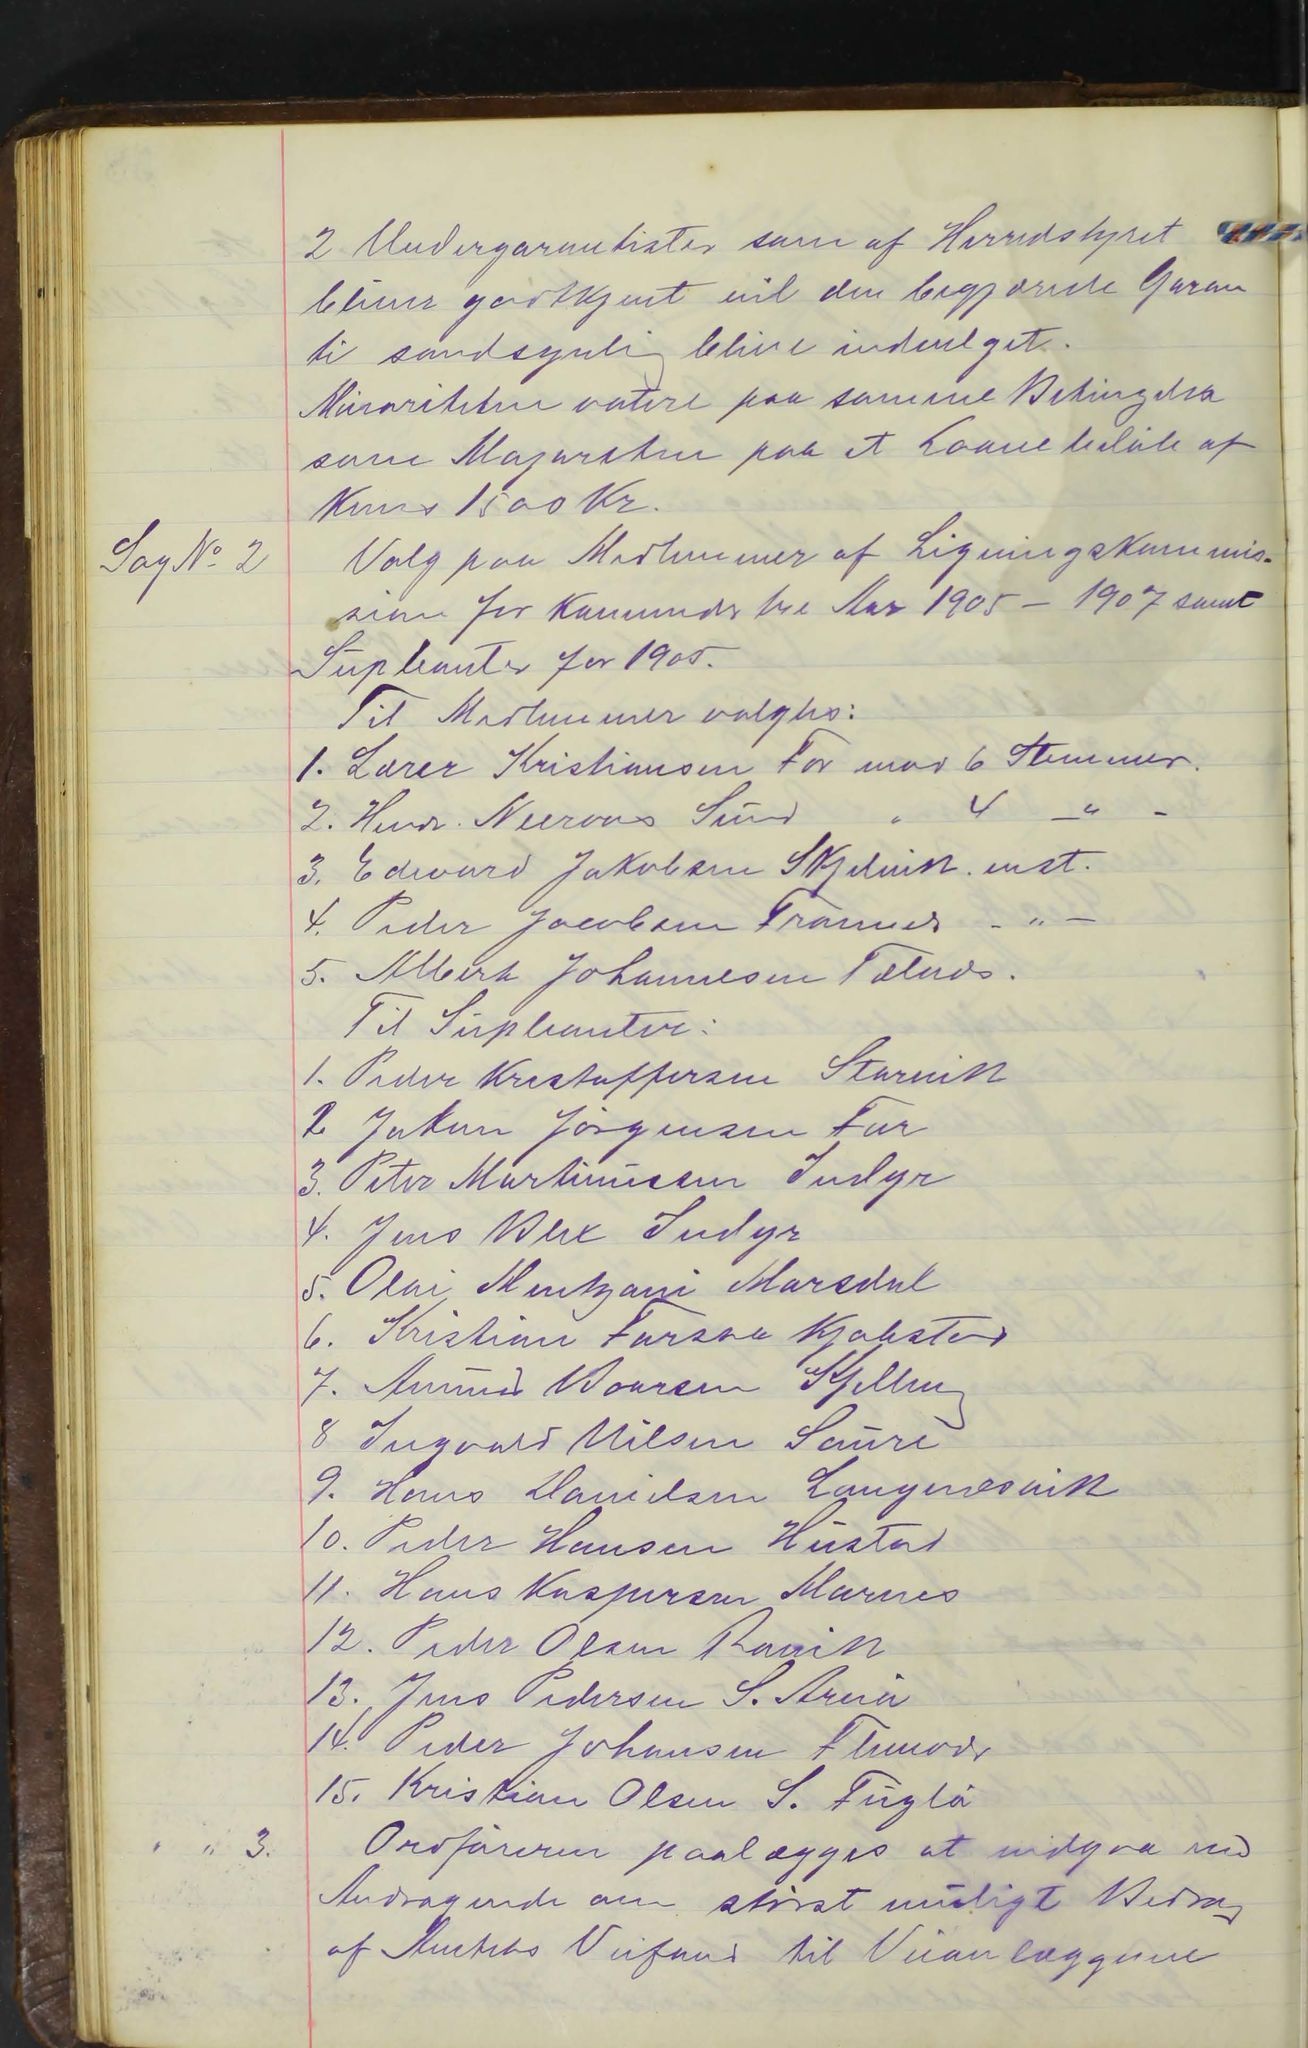 2 Undergarantister som af Herredstyret
bliver godtkjent vil den begjærede Garan
ti sandsynlig blive indvelget.
Minoriteten votere paa samme Betingelse
som Majoriteten paa et Laanebeløb af
Kuns 1500 Kr.
Sag No. 2 Valg paa Medlemmer af Ligningskommis-
sion for kommende tre Aar 1905 - 1907 samt
Supleanter for 1905.
Til Medlemmer valgtes:
1. Lærer Kristiansen For med 6 Stemmer.
2. Hendr. Neeraas Sund " 4 " -
3. Edvard Jakobsen Skjelvik. enst.
4. Peder Jacobsen - " -
5. Albert Johannesen
Til Supleanter:
1. Peder Kristoffersen Storvik
2 Jakon Jörgensen For
3. Peter Martinussen Indyr
4. Jens Blix Indyr
5. Olai Mentzoni Marsdal
6. Kristian Forsaa Kjøbstad
7. Amund Boarsen Kjelling
8 Ingvald Nilsen Saure
9. Hans Danielsen Langnesvik
10. Peder Hansen Hustad
11. Hans Kaspersen Marnes
12. Peder Olsen
13. Jens Pedersen S. Arnö
14. Peder Johansen
15. Kristian Olsen S. Fuglö
" " 3. Ordföreren paalægges at indgaa med
Andragende om störst muligt Bidrag
af Amtets Veifond til Veianlæggene